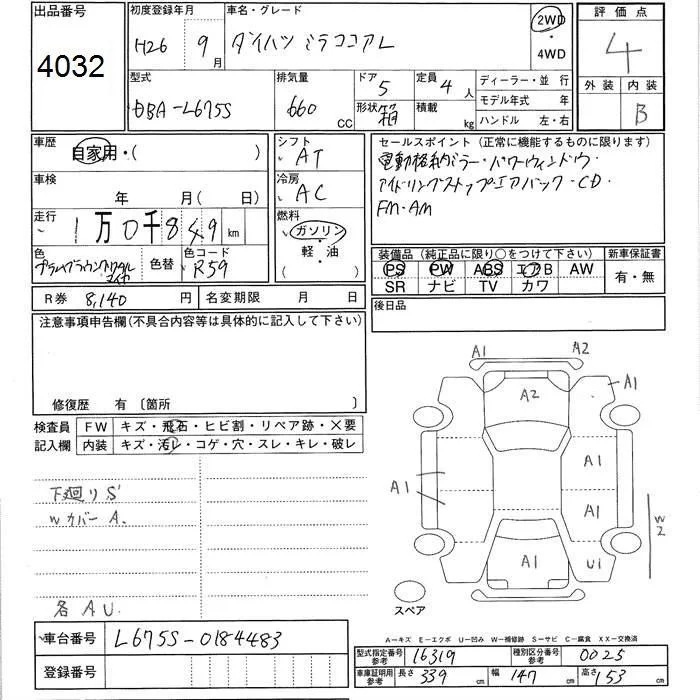 出品番号 初度登録年月 車名・グレード 評価点
4032 H26 9月 ダイハツ ミラココアL 2WD・4WD 4
外装 内装
B
型式 排気量 ドア 定員 ディーラー・並行
DBA-L675S 660CC 5 4人 モデル年式 年
形状 箱 積載 kg ハンドル 左・右
車歴 シフト セールスポイント(正常に機能するものに限ります)
自家用・( ) AT 電動格納ミラー・パワーウィンドウ・
車検 冷房 アイドリングストップ・エアバック・CD・
年 月( ) AC FM・AM
走行 燃料
1万0千849km ガソリン・軽・油
色 色替 色コード 装備品(純正品に限り○をつけて下さい) 新車保証書
R59 PS PW ABS エアB AW 有・無
SR ナビ TV カワ
R券 8,140円 名変期限 月 日 後日品
注意事項申告欄(不具合内容等は具体的に記入して下さい)
修復歴 有 〔箇所
検査員 FW キズ・飛石・ヒビ割・リペア跡・X要
記入欄 内装 キズ・汚レ・コゲ・穴・スレ・キレ・破レ
下廻りS
Wカバー A.
各 A U.
A1 A2
A2 A1
A1
A1
A1 W2
A1 U1
スペア
A－キズ E－エクボ U－凹み W－補修跡 S－サビ C－腐食 XX－交換済
車台番号 L675S-0184483
登録番号
型式指定番号参考 16319 種別区分番号参考 0025
車庫証明用参考 長さ 339cm 幅 147cm 高さ 153cm